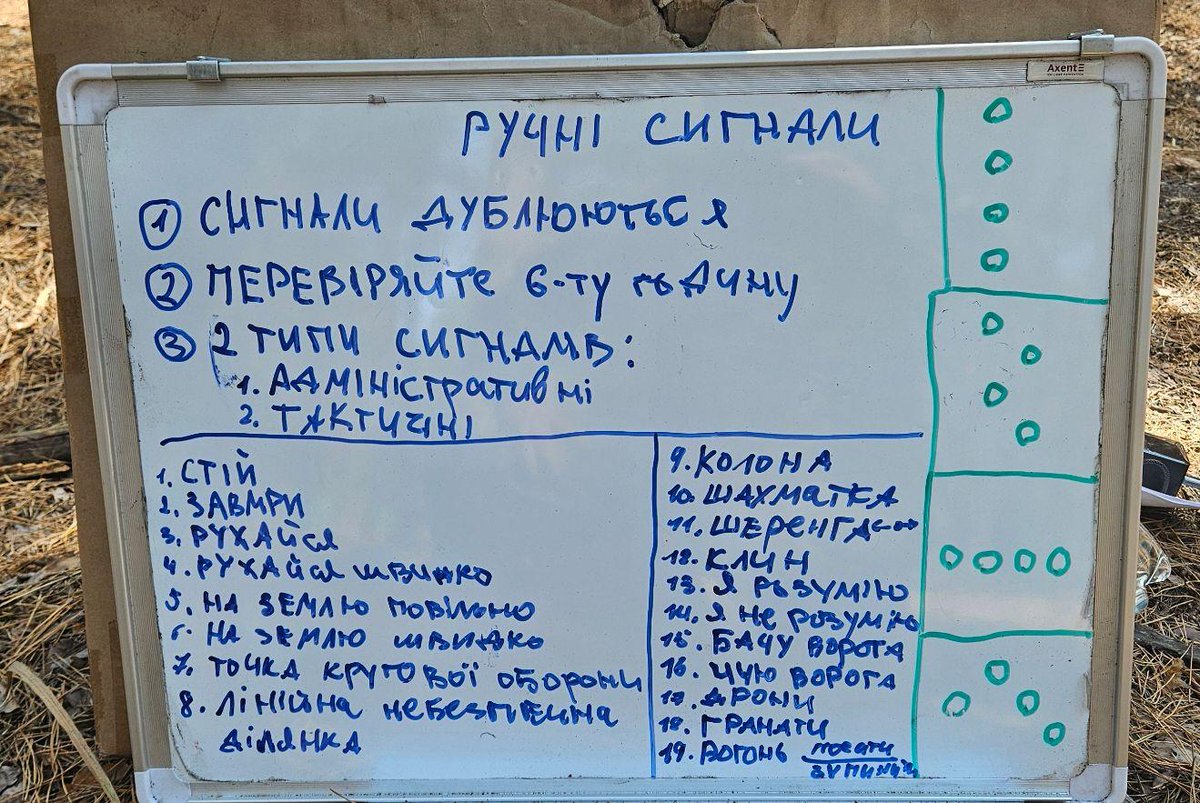 Axent
РУЧНІ СИГНАЛИ
① СИГНАЛИ ДУБЛЮЮТЬСЯ
② ПЕРЕВІРЯЙТЕ 6-ТУ ГОДИНУ
③ 2 ТИПИ СИГНАЛІВ:
1. АДМІНІСТРАТИВНІ
2. ТАКТИЧНІ
1. СТІЙ
2. ЗАВМРИ
3. РУХАЙСЯ
4. РУХАЙСЯ ШВИДКО
5. НА ЗЕМЛЮ ПОВІЛЬНО
6. НА ЗЕМЛЮ ШВИДКО
7. ТОЧКА КРУГОВОЇ ОБОРОНИ
8. ЛІНІЙНА НЕБЕЗПЕЧНА
ДІЛЯНКА
9. КОЛОНА
10. ШАХМАТКА
11. ШЕРЕНГА
12. КЛИН
13. Я РОЗУМІЮ
14. Я НЕ РОЗУМІЮ
15. БАЧУ ВОРОГА
16. ЧУЮ ВОРОГА
17. ДРОНИ
18. ГРАНАТИ
19. ВОГОНЬ